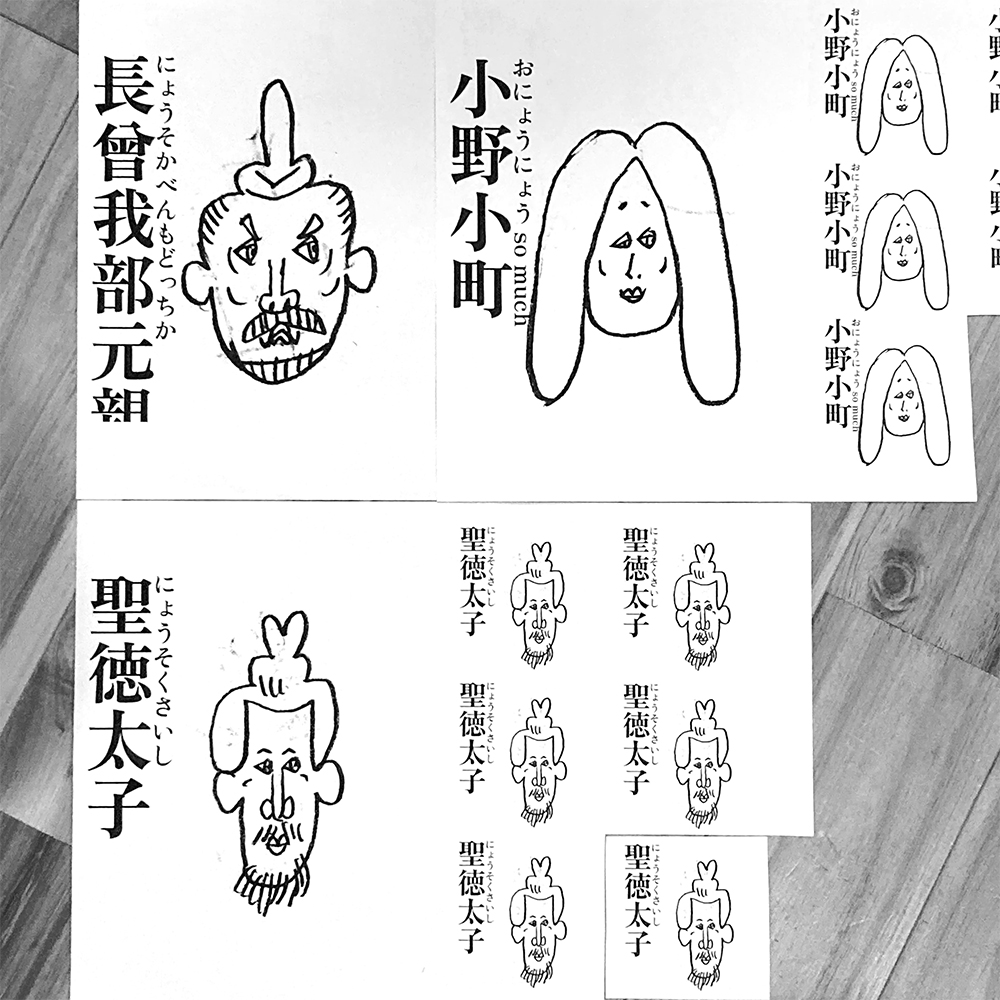 長曾我部元親
にょうそかべんもどっちか
小野小町
おにょうにょう so much
小野小町
おにょうにょう so much
小野小町
おにょうにょう so much
小野小町
おにょうにょう so much
聖徳太子
にょうそくさいし
聖徳太子
にょうそくさいし
聖徳太子
にょうそくさいし
聖徳太子
にょうそくさいし
聖徳太子
にょうそくさいし
聖徳太子
にょうそくさいし
聖徳太子
にょうそくさいし